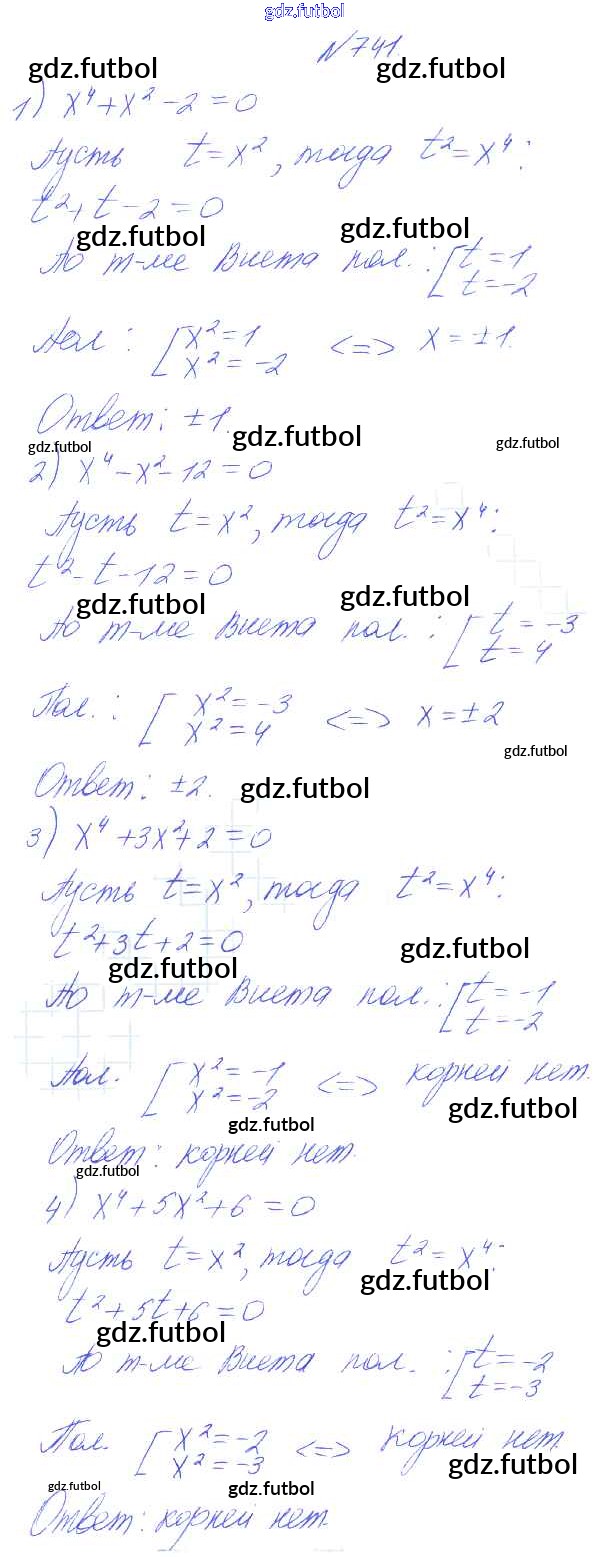 gdz.futbol
N741.
gdz.futbol gdz.futbol
1) x⁴+x²-2=0
Пусть t=x², тогда t²=x⁴:
t²+t-2=0
gdz.futbol gdz.futbol
По т-ме Виета пол.: [t=1
t=-2
Пол: [x²=1
x²=-2 <=> x=±1.
Ответ: ±1.
gdz.futbol gdz.futbol gdz.futbol
2) x⁴-x²-12=0
Пусть t=x², тогда t²=x⁴:
t²-t-12=0
gdz.futbol gdz.futbol
По т-ме Виета пол.: [t=-3
t=4
Пол.: [x²=-3
x²=4 <=> x=±2
gdz.futbol
Ответ: ±2. gdz.futbol
3) x⁴+3x²+2=0
Пусть t=x², тогда t²=x⁴:
t²+3t+2=0
gdz.futbol gdz.futbol
По т-ме Виета пол.: [t=-1
t=-2
Пол. [x²=-1
x²=-2 <=> корней нет.
gdz.futbol gdz.futbol
Ответ: корней нет.
gdz.futbol
4) x⁴+5x²+6=0
Пусть t=x², тогда t²=x⁴:
gdz.futbol
t²+5t+6=0
gdz.futbol
По т-ме Виета пол.: [t=-2
t=-3
Пол. [x²=-2
x²=-3 <=> корней нет
gdz.futbol gdz.futbol gdz.futbol
Ответ: корней нет.